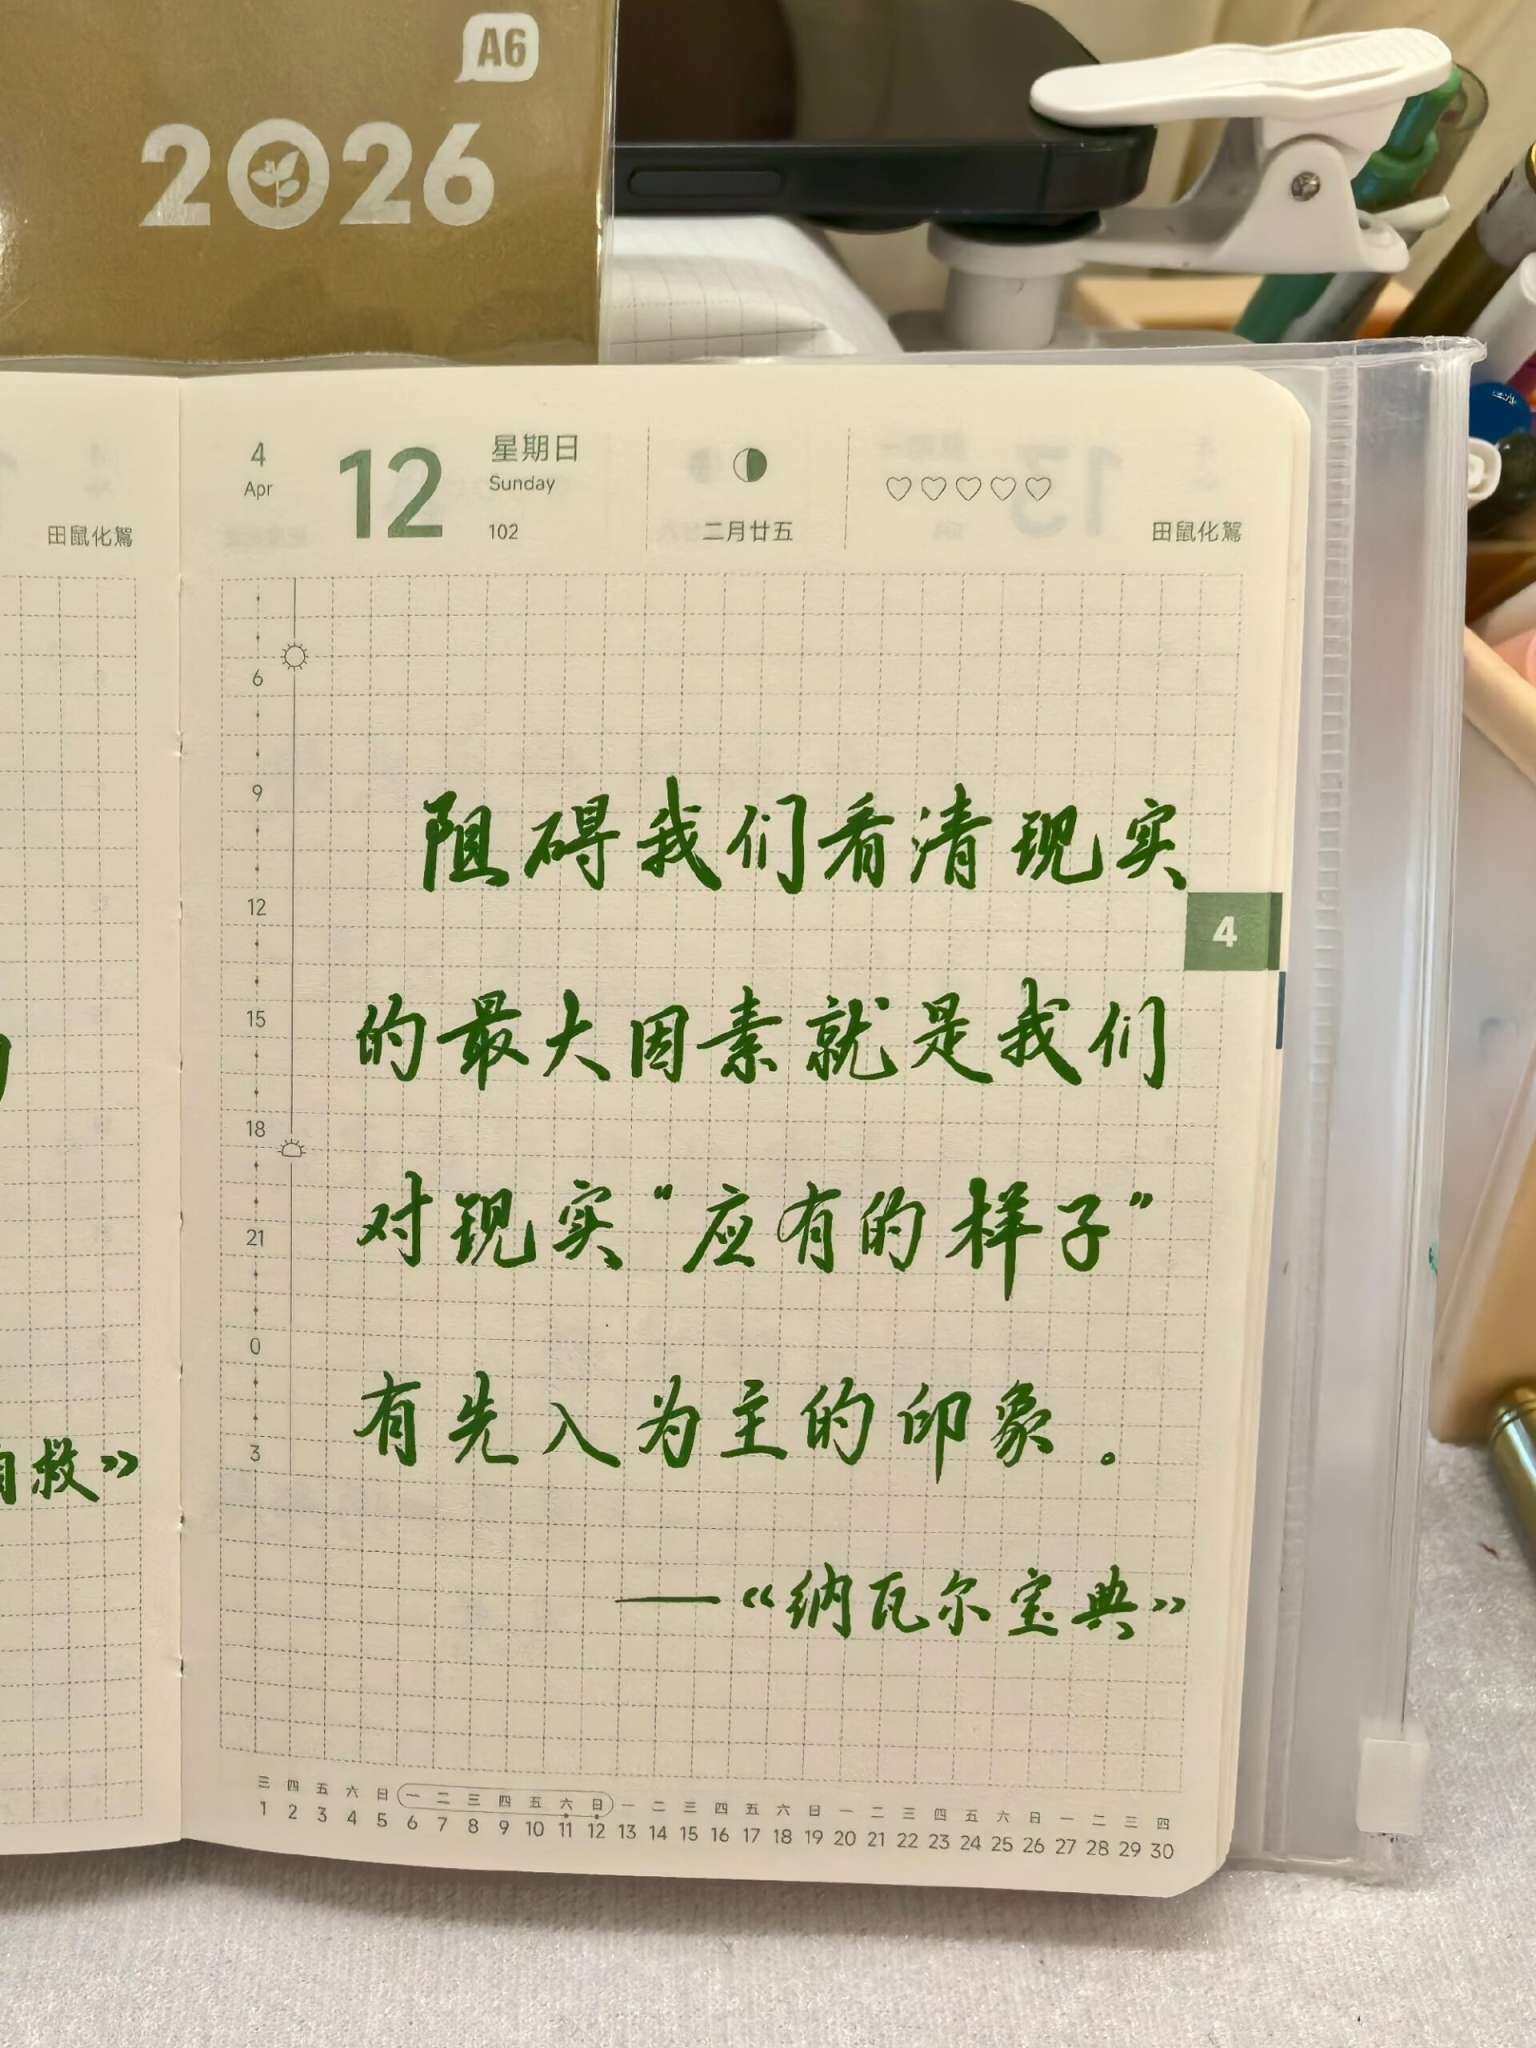 A6
2026
4
Apr
12
星期日
Sunday
102
二月廿五
田鼠化鴽
田鼠化鴽
6
9
12
15
18
21
0
3
阻碍我们看清现实
的最大因素就是我们
对现实“应有的样子”
有先入为主的印象。
——《纳瓦尔宝典》
4
自救》
三 四 五 六 日 一 二 三 四 五 六 日 一 二 三 四 五 六 日 一 二 三 四 五 六 日 一 二 三 四
1 2 3 4 5 6 7 8 9 10 11 12 13 14 15 16 17 18 19 20 21 22 23 24 25 26 27 28 29 30